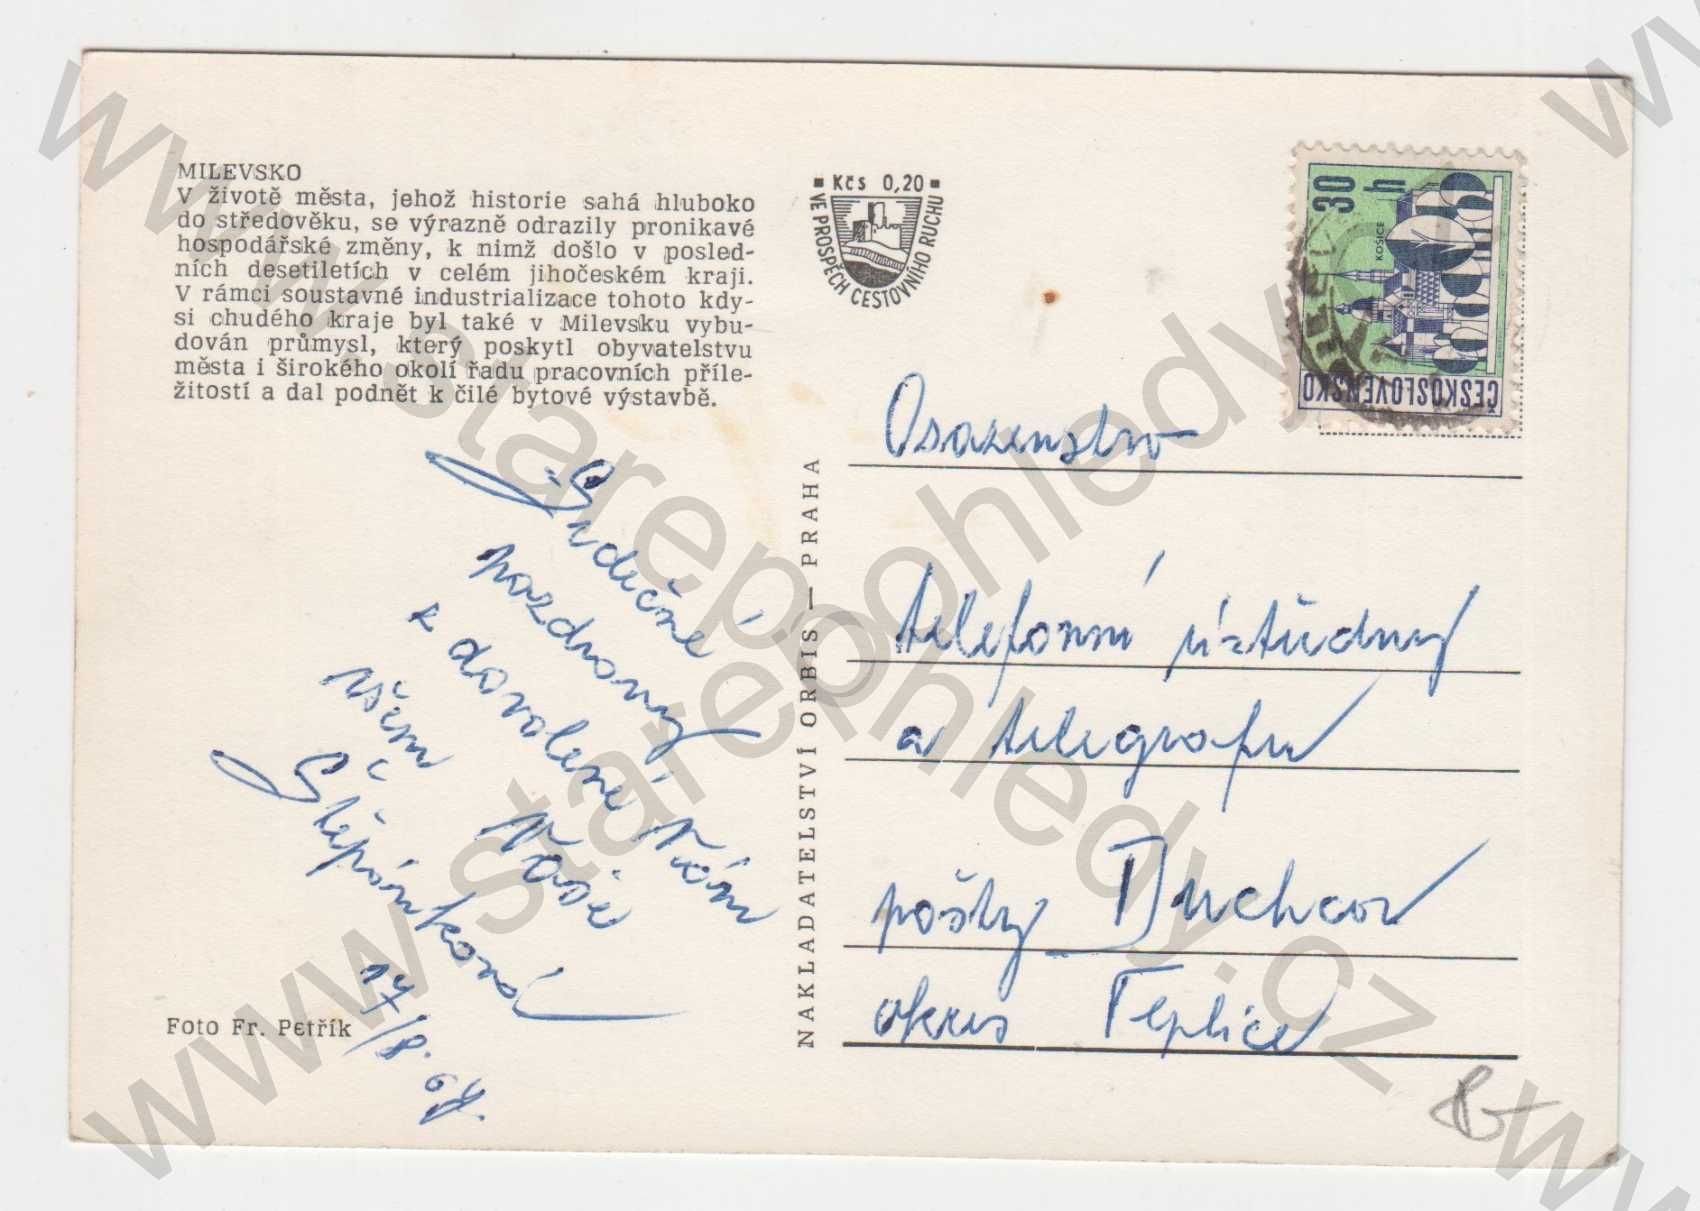 MILEVSKO
V životě města, jehož historie sahá hluboko
do středověku, se výrazně odrazily pronikavé
hospodářské změny, k nimž došlo v posled-
ních desetiletích v celém jihočeském kraji.
V rámci soustavné industrializace tohoto kdy-
si chudého kraje byl také v Milevsku vybu-
dován průmysl, který poskytl obyvatelstvu
města i širokého okolí řadu pracovních příle-
žitostí a dal podnět k čilé bytové výstavbě.
Srdečné
pozdravy
z dovolené Vám
všem Vaše
Štěpánková
17/8.
Foto Fr. Petřík
NAKLADATELSTVÍ ORBIS — PRAHA
Kčs 0,20
VE PROSPĚCH CESTOVNÍHO RUCHU
30 h
KOŠICE
ČESKOSLOVENSKO
Osazenstvo
telefonní ústředny
a telegrafu
pošty Duchcov
okres Teplice
www.starepohledy.cz
www.starepohledy.cz